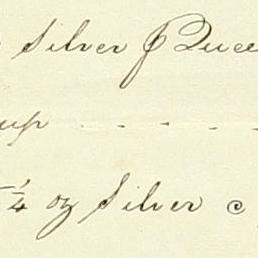 Silver Quee
up - - - -
¼ oz Silver @